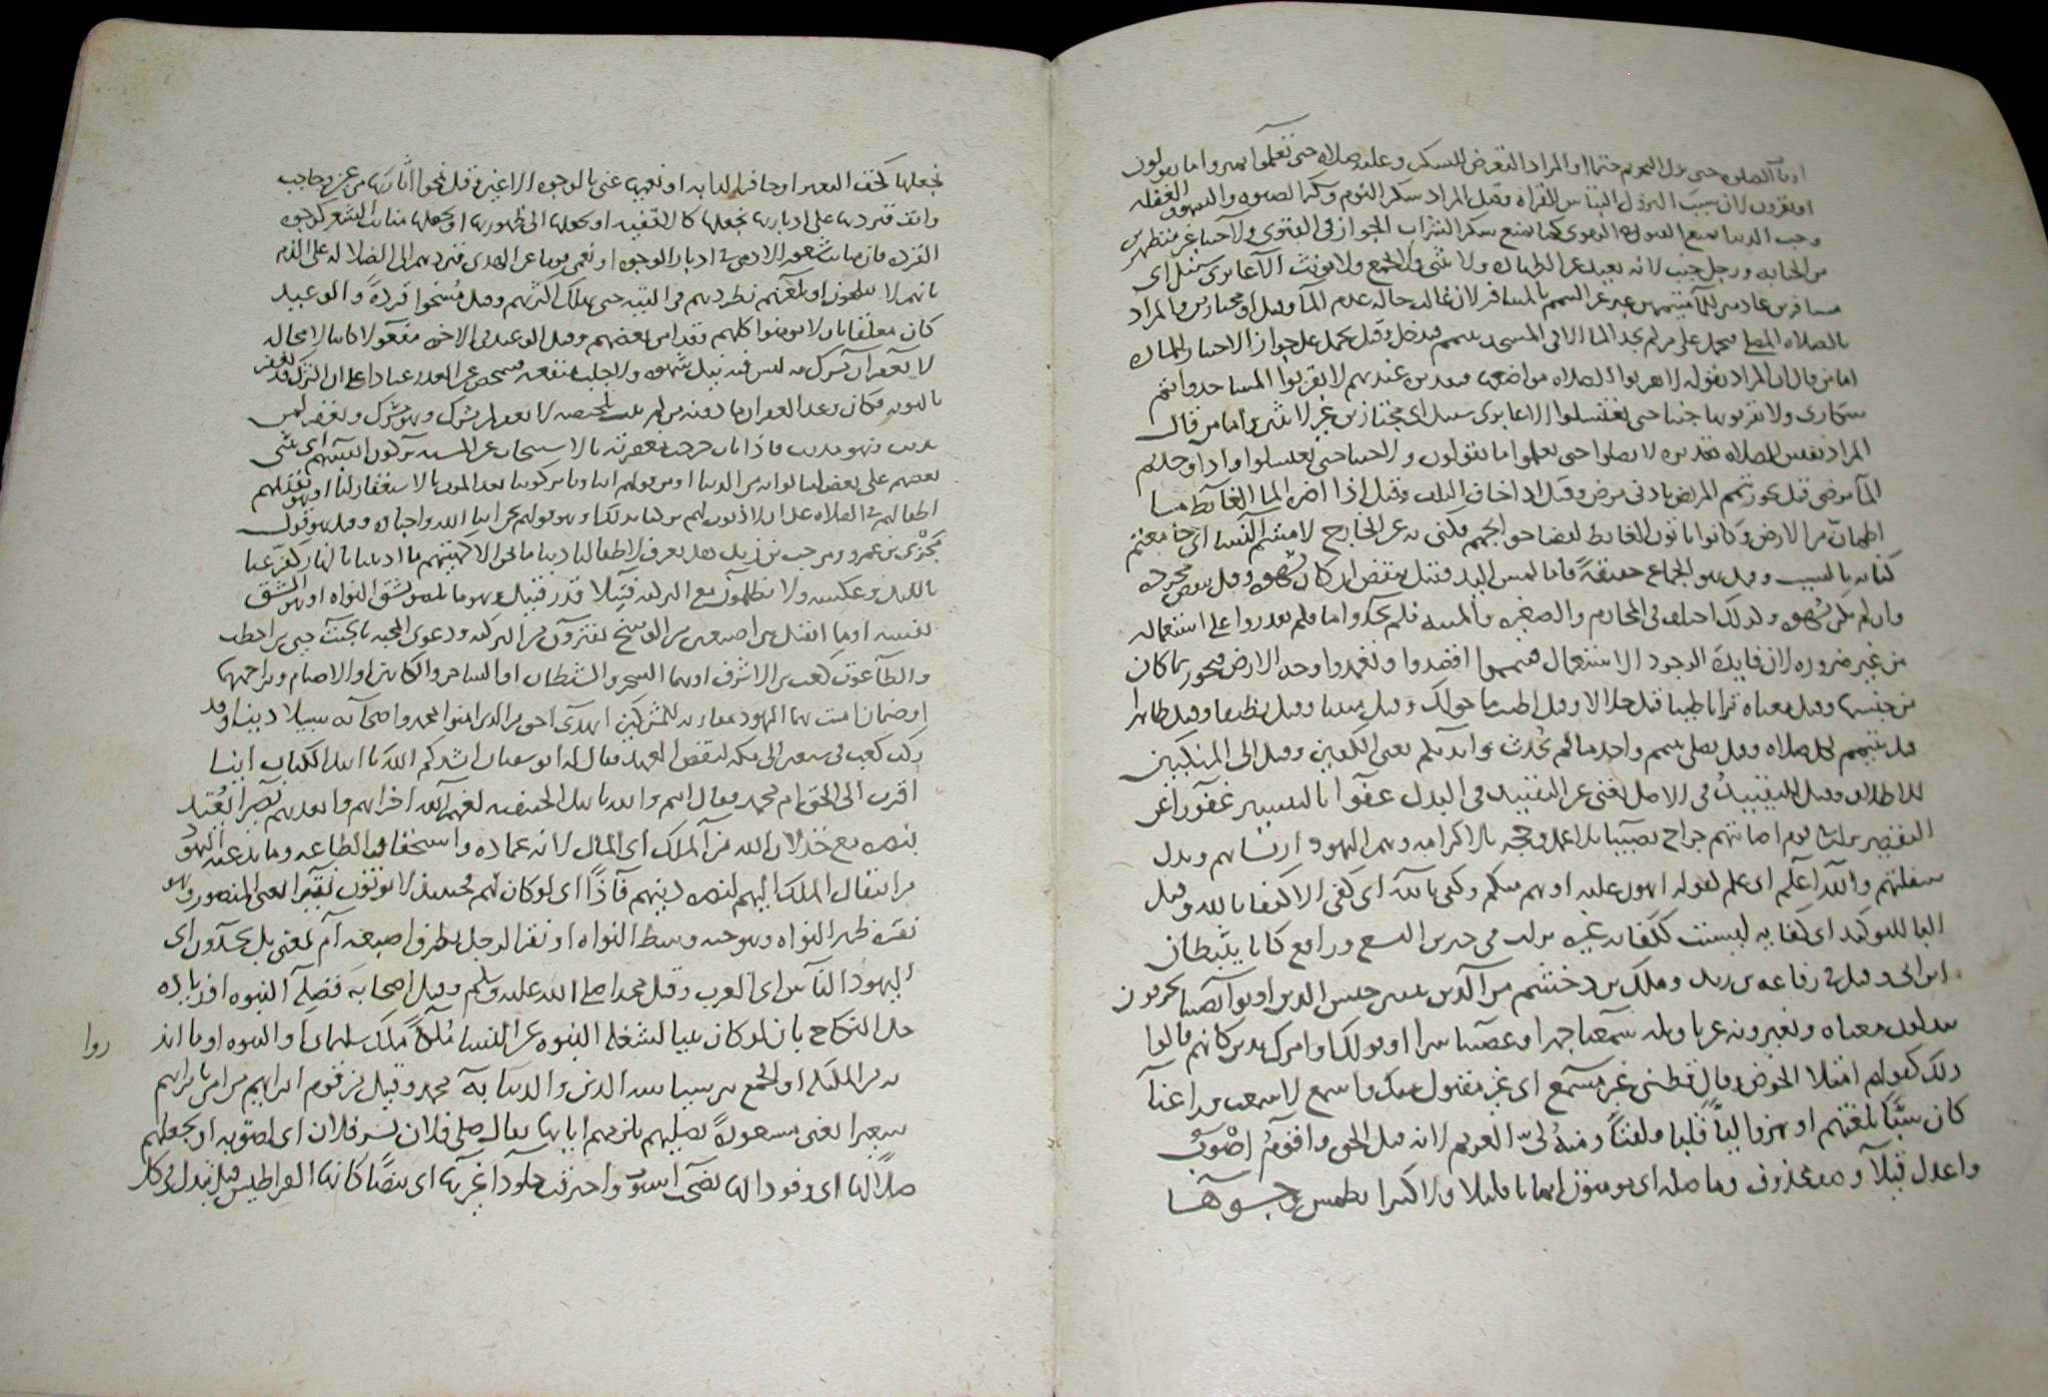 اوقات الصلوة حتى نزل التحريم حتما او المراد التعرض للسكر وعليه صلاة حتى تعلموا تميزوا ما تقولون
او تقرون لان سبب النزول التباس القراة وقيل المراد سكر النوم وكرا لصلوة والسهو والغفلة
وحب الدنيا يمنع القبول في التقوى كما يمنع سكر الشراب الجواز في الفتوى ولا جنبا غير متطهرين
من الجنابة ورجل جنب لانه بعيد عن الطهارة ولا يثنى ولا يجمع ولا يؤنث الا عابري سبيل اى
مسافرين عادمين للماء متيممين عبر عن التيمم بالمسافر لان غالب حاله عدم الماء وقيل او مجتازين والمراد
بالصلاة المصلى فيحمل على من لم يجد الماء الا في المسجد يتيمم فيدخل وقيل يحمل على جواز الاجتياز للماء
اما من قال ان المراد بقوله لا تقربوا الصلاة مواضعها فتقديره عندهم لا تقربوا المساجد وانتم
سكارى ولا تقربوها جنبا حتى تغتسلوا الا عابري سبيل اى مجتازين غير لابثين اما من قال
المراد نفس الصلاة تقديره لا تصلوا حتى تعلموا ما تقولون ولا جنبا حتى تغتسلوا
مرضى قيل يجوز تيمم المريض بادنى مرض وقيل اذا خاف التلف وقيل اذا اضره الماء الغائط ما
اطمان من الارض وكانوا ياتون الغائط لقضاء حوائجهم فكنى به عن الخارج لامستم النساء اى جامعتم
كناية بالسبب وقيل هو الجماع حقيقة فاما لمس اليد فقيل ينقض ان كان بشهوة وقيل ينقض مجرده
وان لم يكن بشهوة ولذلك اختلف في المحارم والصغيرة والميتة فلم تجدوا ماء فلم تقدروا على استعماله
من غير ضرورة لان فايدة الوجود الاستعمال فتيمموا اقصدوا وتعمدوا وجه الارض فيجوز بما كان
من جنسها وقيل معناه ترابا طيبا قيل حلالا وقيل اطيب ما حولك وقيل منبتا وقيل نظيفا وقيل طاهرا
قيل يتيمم لكل صلاة وقيل يصلي بتيمم واحد ما لم يحدث وايديكم يعنى الكفين وقيل الى المنكبين
للاطلاق وقيل التقييد في الاصل يغنى عن التقييد في البدل عفوا بالتيسير غفورا عن
التقصير نزلت في قوم اصابتهم جراح نصيبا
سفلتهم والله اعلم اى علم كقوله اهون عليه او هو منكم وكفى بالله اى كفى الاكتفاء بالله وقيل
الباء للتوكيد اى كفاية ليست ككفاية غيره نزلت في حيي بن اليسع ورافع كانا يثبطان
ابن ابي وقيل في رفاعة بن زيد وملك بن دخشم من الذين تبيين جنس الذين اوتوا الكتاب يحرفون
يبدلون معناه ويغيرونه عن تاويله سمعنا جهرا وعصينا سرا او قولك وامرك
ذلك كقولهم امتلا الحوض وقال قطني غير مسمع اى غير مقبول منك واسمع لا سمعت وراعنا
كان سبا بلغتهم او هزوا ليا قلبا ولفتا ومنه لى الغريم لانه قلب الحق واقوم اصوب
واعدل قليلا ومعذوف وما صلة اى يؤمنون ايمانا قليلا ولا كثيرا نطمس وجوها
نجعلها كخف البعير او حافر الدابة او نعميها عنى بالوجوه الاعين وقيل نمحوا اثارها من عين وحاجب
وانف فنردها على ادبارها نجعلها كالاقفية او نجعلها الى ظهورها او نجعلها منابت الشعر كوجوه
القردة فان منابت شعور الادمي في ادبار الوجوه او نعمى قوما عن الهدى فنردهم الى الضلالة على الذم
بانهم لا يفلحون او نلعنهم نطردهم في التيه حتى يهلك اكثرهم وقيل نمسخوا قردة والوعيد
كان معلقا بان لا يؤمنوا كلهم وقد امن بعضهم وقيل الوعيد في الاخرة مفعولا كائنا لا محالة
لا يغفر ان يشرك به ليس فيه نيل شهوة ولا جلب منفعة فتمحض عن العذر عنادا على ان الشرك قد يغفر
بالتوبة فكان وعد الغفران ما دونه من لم يتب لا يغفر لمن يشرك وهو مشرك ويغفر لمن
يذنب وهو مذنب فاذا تاب خرجت مغفرته بالاستحقاق عن المشيئة يزكون انفسهم اى يثنى
بعضهم على بعض لينالوا به من الدنيا او من قولهم ابناونا يزكوننا بعد الموت بالاستغفار لنا او هو تقديمهم
اطفالهم في الصلاة على ان لا ذنوب لهم يزكينا بذلك او هو قولهم نحن ابناء الله واحباؤه وقيل هو قول
بحرى بن عمرو ومرحب بن زيد هل تعرف لاطفالنا ذنبا ما نحن الا كهيئتهم ما اذنبنا بالنهار كفر عنا
بالليل وعكسه ولا يظلمون مع التزكية فتيلا قدر فتيل وهو ما يلصق بشق النواة او هو الشق
نفسه او ما انفتل بين اصبعين من الوسخ يفترون من التزكية ودعوى المحبة بالجبت حيي بن اخطب
والطاغوت كعب بن الاشرف او هما السحر والشيطان او الساحر والكاهن او الاصنام وتراجمها
او صنمان امنت بهما اليهود مقاربة للمشركين اهدى احق من الذين امنوا محمد واصحابه سبيلا دينا وقد
ركب كعب في سفر الى مكة لنقض العهد فقال له ابو سفيان انشدكم الله يا اهل الكتاب اينا
اقرب الى الحق ام محمد فقال انتم والله يا اهل الحنيفية لعنهم الله اخزاهم وابعدهم نصيرا يعتد
بنصره مع خذلان الله من الملك اى المال لانه عماده واستخفاف الطاعة وما يدعيه اليهود
من انتقال الملك اليهم لنصرة دينهم فاذا اى لو كان لهم فحينئذ لا يؤتون نقيرا يعنى المنصور وهو
نقرة ظهر النواة وهو حبة وسط النواة او نقر الرجل بطرف اصبعه ام بمعنى بل يحسدون اى
اليهود الناس اى العرب وقيل محمدا صلى الله عليه وسلم وقيل اصحابه فضله النبوة او زيادة
حل النكاح بان لو كان نبيا لشغله النبوة عن النساء ملكا ملك سليمان او النبوة او ما ايد
به من الملئكة او الجمع بين سياسة الدين والدنيا به محمد وقيل من قوم ابراهيم من امن بابراهيم
سعيرا يعنى مسعورة نصليهم نلزمهم اياها يقال صلى فلان بشر فلان اى لصق به او نجعلهم
صلا لها اى وقودا لها نضجت اشتوت واحترقت جلودا غيرها اى بيضا كانها القراطيس قيل تبدل في كل
روا